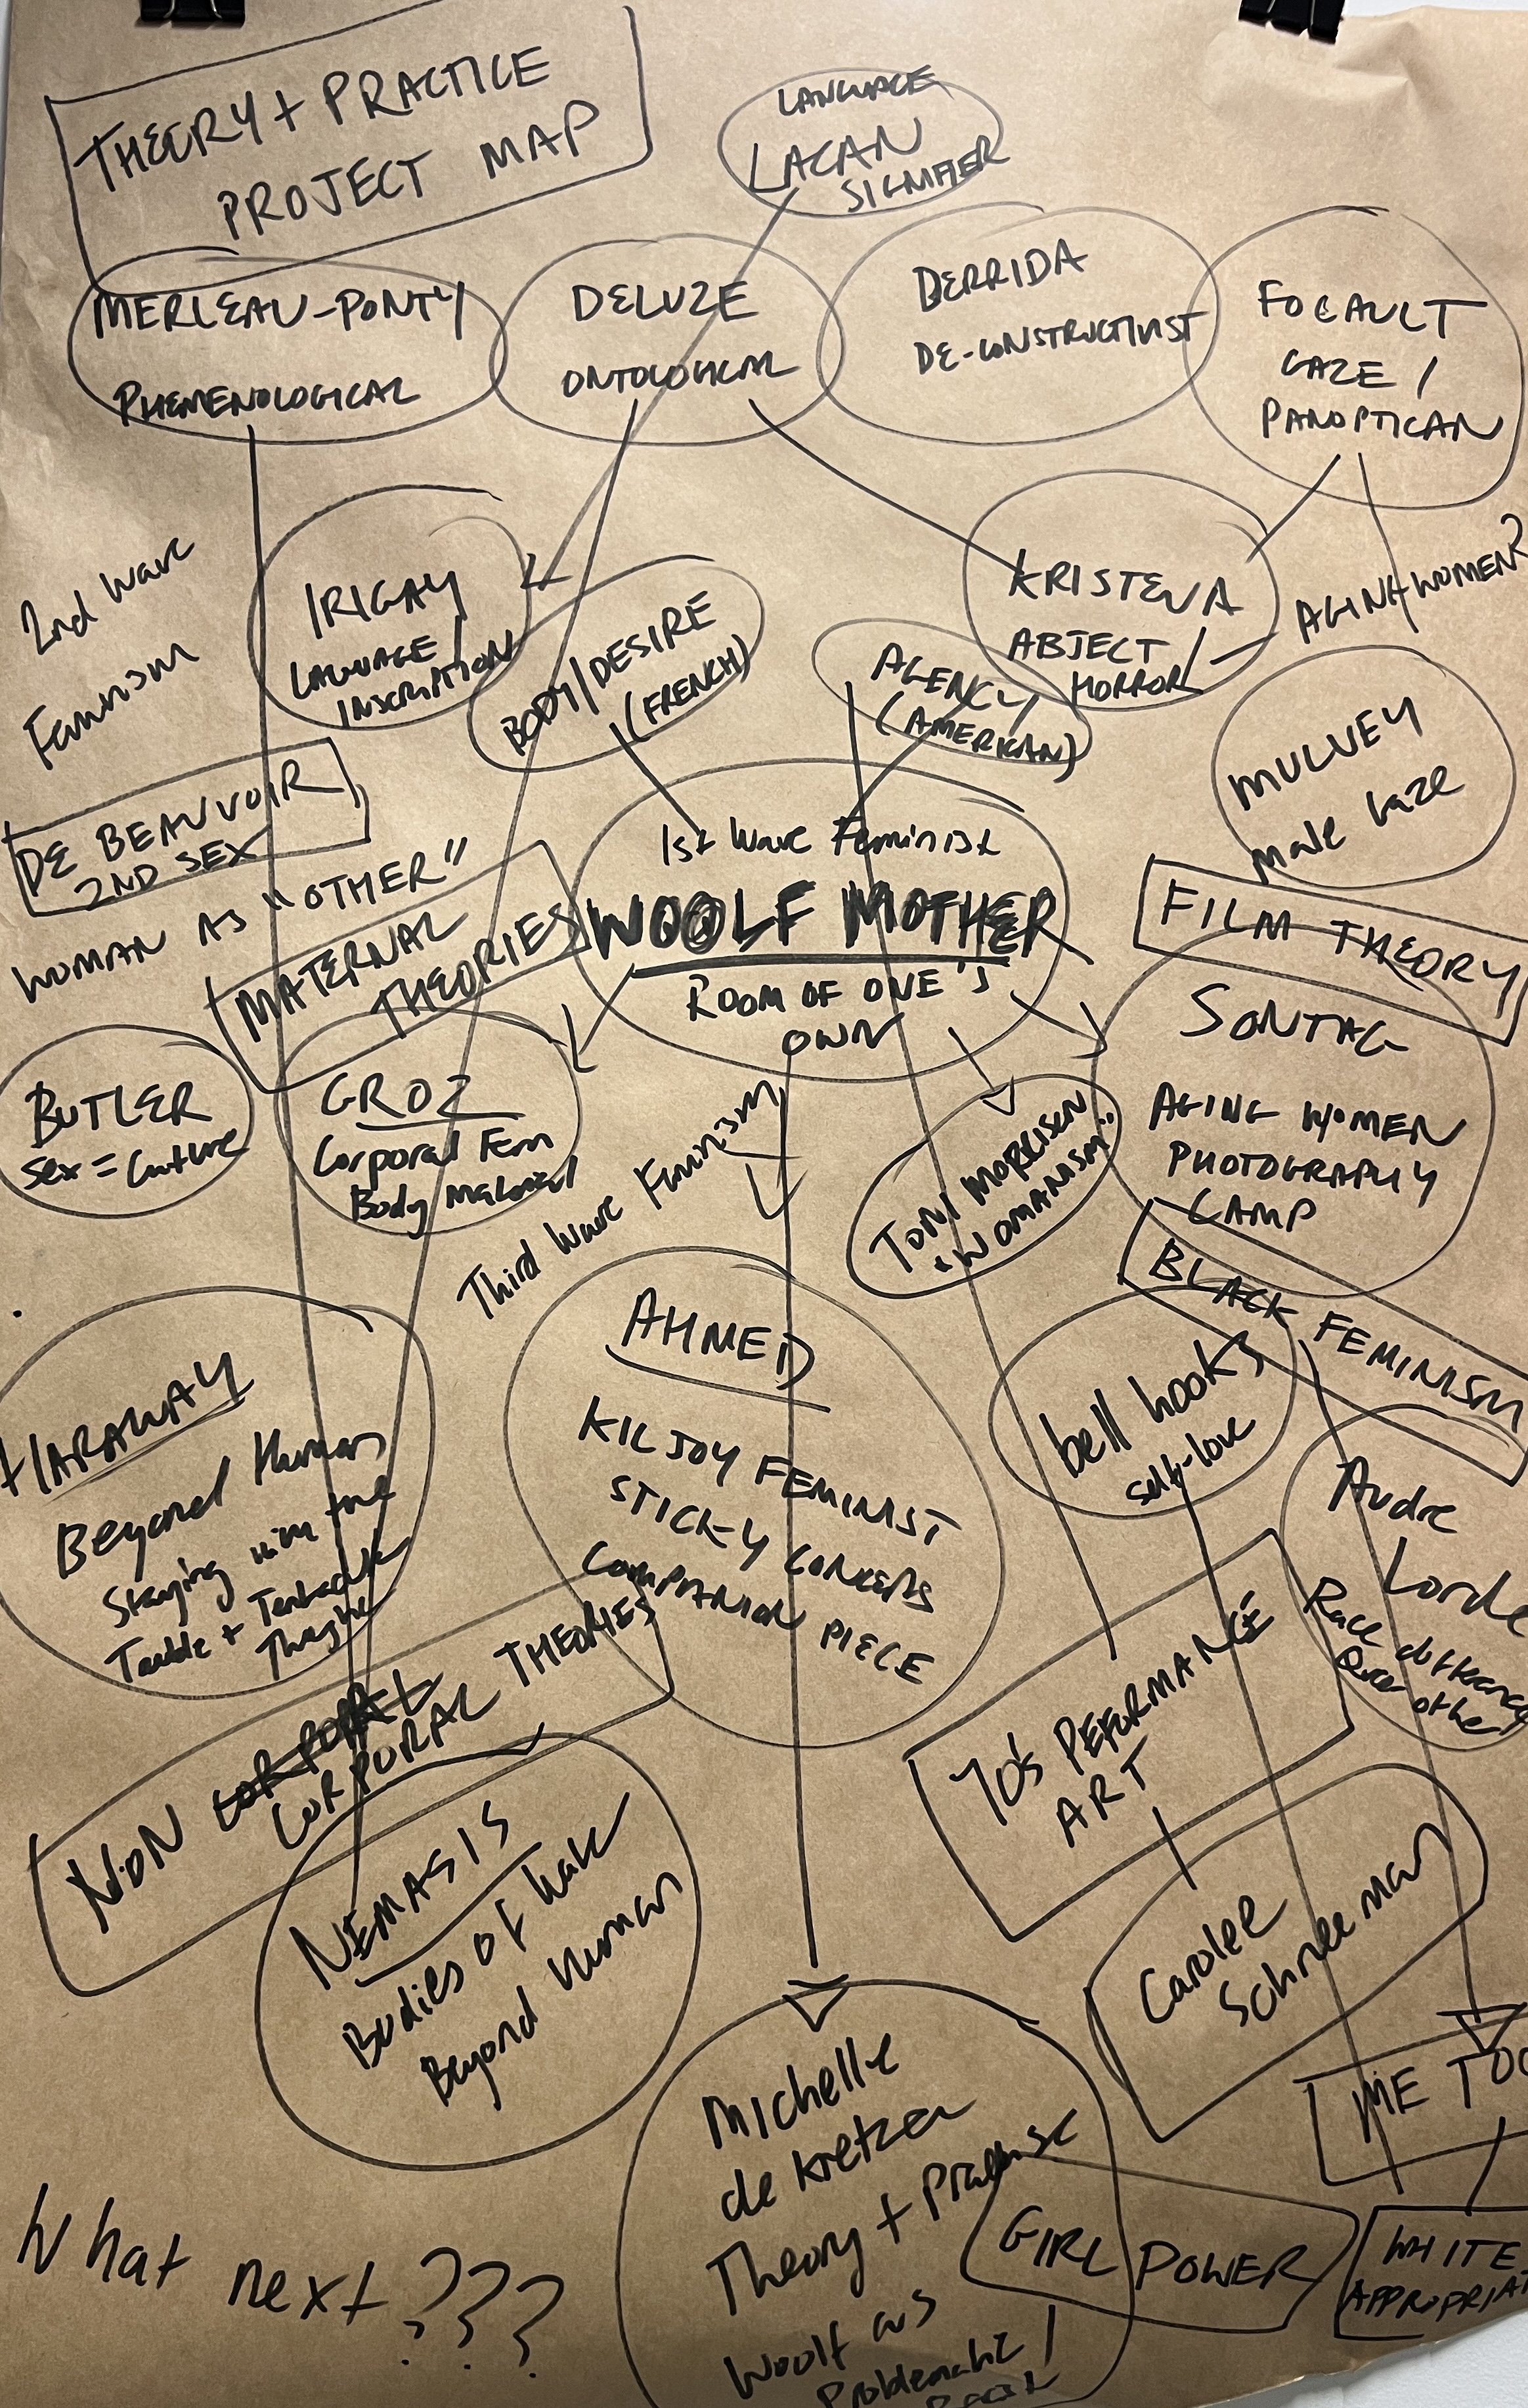 THEORY + PRACTICE
PROJECT MAP
LANGUAGE
LACAN
SIGNIFIER
MERLEAU-PONTY
PHEMENOLOGICAL
DELUZE
ONTOLOGICAL
DERRIDA
DE-CONSTRUCTIVIST
FOCAULT
GAZE /
PANOPTICAN
2nd Wave
Feminism
IRIGAY
LANGUAGE /
INSCRIPTION
BODY/DESIRE
(FRENCH)
AGENCY
(AMERICAN)
KRISTEVA
ABJECT /
HORROR
AGING WOMEN?
MULVEY
male Gaze
DE BEAUVOIR
2ND SEX
WOMAN AS "OTHER"
MATERNAL
THEORIES
1st Wave Feminist
WOOLF MOTHER
ROOM OF ONE'S
OWN
FILM THEORY
SONTAG
AGING WOMEN
PHOTOGRAPHY
CAMP
BUTLER
Sex = Culture
GROZ
Corporal Fem
Body Material
Third Wave Feminism
TONI MORRISEN
"WOMANISM"
BLACK FEMINISM
HARAWAY
Beyond Human
Staying with the
Trouble + Tentacule
Thought
AHMED
KILJOY FEMINIST
STICKY CONCEPTS
COMPANION PIECE
bell hooks
self-love
Audre
Lorde
Race difference
Queer other
NON CORPORAL
CORPORAL THEORIES
70's PEFORMANCE
ART
NEMASIS
Bodies of Water
Beyond Human
Carolee
Schneeman
ME TOO
Michelle
de Kretzer
Theory + Practise
Woolf as
Problematic /
Racist
GIRL POWER
WHITE
APPROPRIAT
What next ???